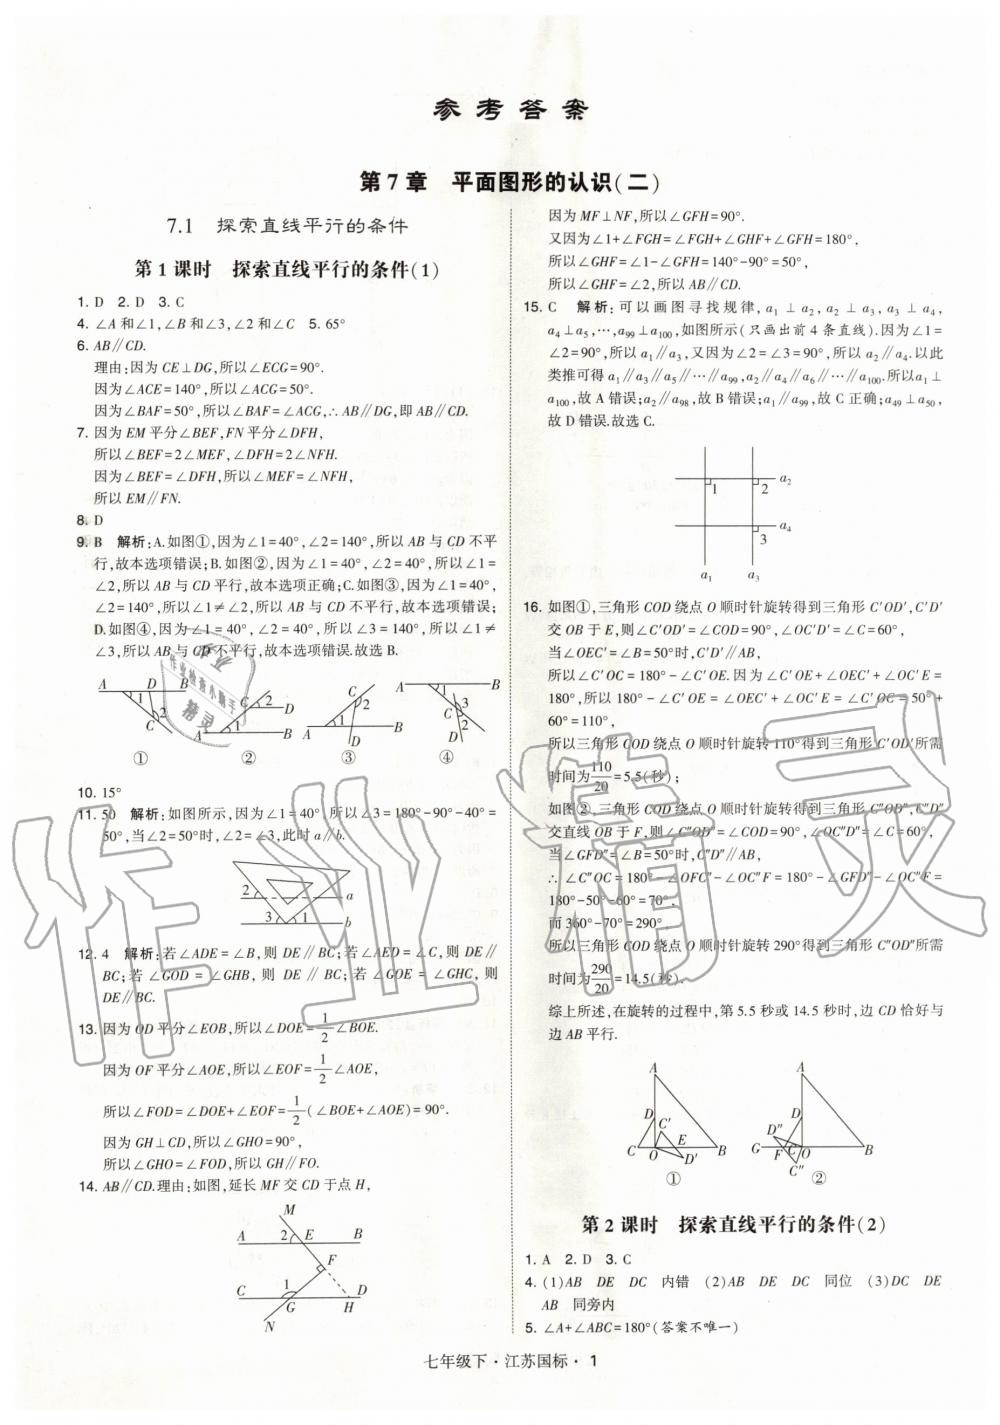 参考答案
第7章 平面图形的认识(二)
7.1 探索直线平行的条件
第1课时 探索直线平行的条件(1)
1. D 2. D 3. C
4. ∠A和∠1,∠B和∠2,∠2和∠C 5. 65°
6. AB∥CD.
理由:因为CE⊥DG,所以∠ECG=90°.
因为∠ACE=140°,所以∠ACG=50°.
因为∠BAF=50°,所以∠BAF=∠ACG,∴AB∥DG,即AB∥CD.
7. 因为EM平分∠BEF,FN平分∠DFH,
所以∠BEF=2∠MEF,∠DFH=2∠NFH.
因为∠BEF=∠DFH,所以∠MEF=∠NFH,
所以EM∥FN.
8. D
9. B 解析:A.如图①,因为∠1=40°,∠2=140°,所以AB与CD不平
行,故本选项错误;B.如图②,因为∠1=40°,∠2=40°,所以∠1=
∠2,所以AB与CD平行,故本选项正确;C.如图③,因为∠1=40°,
∠2=140°,所以∠1≠∠2,所以AB与CD不平行,故本选项错误;
D.如图④,因为∠1=40°,∠2=40°,所以∠3=140°,所以∠1≠
∠3,所以AB与CD不平行,故本选项错误.故选B.
A D B 1 2 C
A B C D 1 2
A B C D 1 2
A B C D 1 2 3
① ② ③ ④
10. 15°
11. 50 解析:如图所示,因为∠1=40°,所以∠3=180°-90°-40°=
50°,当∠2=50°时,∠2=∠3,此时a∥b.
2 a
3 1 b
12. 4 解析:若∠ADE=∠B,则DE∥BC;若∠AED=∠C,则DE∥
BC;若∠GOD=∠GHB,则DE∥BC;若∠GOE=∠GHC,则
DE∥BC.
13. 因为OD平分∠EOB,所以∠DOE=1/2∠BOE.
因为OF平分∠AOE,所以∠EOF=1/2∠AOE,
所以∠FOD=∠DOE+∠EOF=1/2(∠BOE+∠AOE)=90°.
因为GH⊥CD,所以∠GHO=90°,
所以∠GHO=∠FOD,所以GH∥FO.
14. AB∥CD.理由:如图,延长MF交CD于点H,
M
A 2 E B
F
C 1 D
G H
N
因为MF⊥NF,所以∠GFH=90°.
又因为∠1+∠FGH=∠FGH+∠GHF+∠GFH=180°,
所以∠GHF=∠1-∠GFH=140°-90°=50°,
所以∠GHF=∠2,所以AB∥CD.
15. C 解析:可以画图寻找规律,a₁⊥a₂,a₂⊥a₃,a₃⊥a₄,
a₄⊥a₅,…,a₉₉⊥a₁₀₀,如图所示(只画出前4条直线).因为∠1=
∠2=90°,所以a₁∥a₃,又因为∠2=∠3=90°,所以a₂∥a₄.以此
类推可得a₁∥a₃∥a₅∥…∥a₉₉,a₂∥a₄∥a₆∥…∥a₁₀₀.所以a₁⊥
a₁₀₀,故A错误;a₂∥a₉₈,故B错误;a₁∥a₉₉,故C正确;a₄₉⊥a₅₀,
故D错误.故选C.
1 2 a₂
3 a₄
a₁ a₃
16. 如图①,三角形COD绕点O顺时针旋转得到三角形C′OD′,C′D′
交OB于E,则∠C′OD′=∠COD=90°,∠OC′D′=∠C=60°,
当∠OEC′=∠B=50°时,C′D′∥AB,
所以∠C′OC=180°-∠C′OE.因为∠C′OE+∠OEC′+∠OC′E=
180°,所以180°-∠C′OE=∠OEC′+∠OC′E=∠C′OC=50°+
60°=110°,
所以三角形COD绕点O顺时针旋转110°得到三角形C′OD′所需
时间为110/20=5.5(秒);
如图②,三角形COD绕点O顺时针旋转得到三角形C″OD″,C″D″
交直线OB于F,则∠C″OD″=∠COD=90°,∠OC″D″=∠C=60°,
当∠GFD″=∠B=50°时,C″D″∥AB,
∴∠C″OC=180°-∠OFC″-∠OC″F=180°-∠GFD″-∠OC″F=
180°-50°-60°=70°,
而360°-70°=290°,
所以三角形COD绕点O顺时针旋转290°得到三角形C″OD″所需
时间为290/20=14.5(秒).
综上所述,在旋转的过程中,第5.5秒或14.5秒时,边CD恰好与
边AB平行.
A D C′ E C O D′ B
A D D″ G F C O B C″
① ②
第2课时 探索直线平行的条件(2)
1. A 2. D 3. C
4. (1)AB DE DC 内错 (2)AB DE DC 同位 (3)DC DE
AB 同旁内
5. ∠A+∠ABC=180°(答案不唯一)
七年级下·江苏国标·1
作业精灵
作业检查小助手
精灵